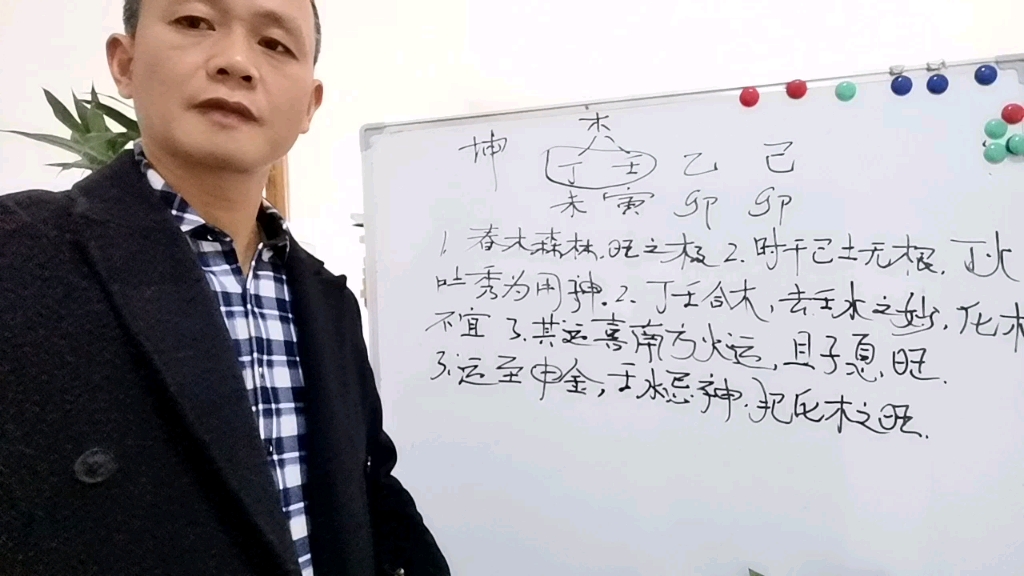 木
坤 丁 壬 乙 己
未 寅 卯 卯
1. 春木森林，旺之极 2. 时干己土无根，丁火
吐秀为用神. 2. 丁壬合木，去壬水之妙，化木
不宜 3. 其运喜南方火运，且子息旺.
3. 运至申金，壬水忌神. 犯化木之旺.